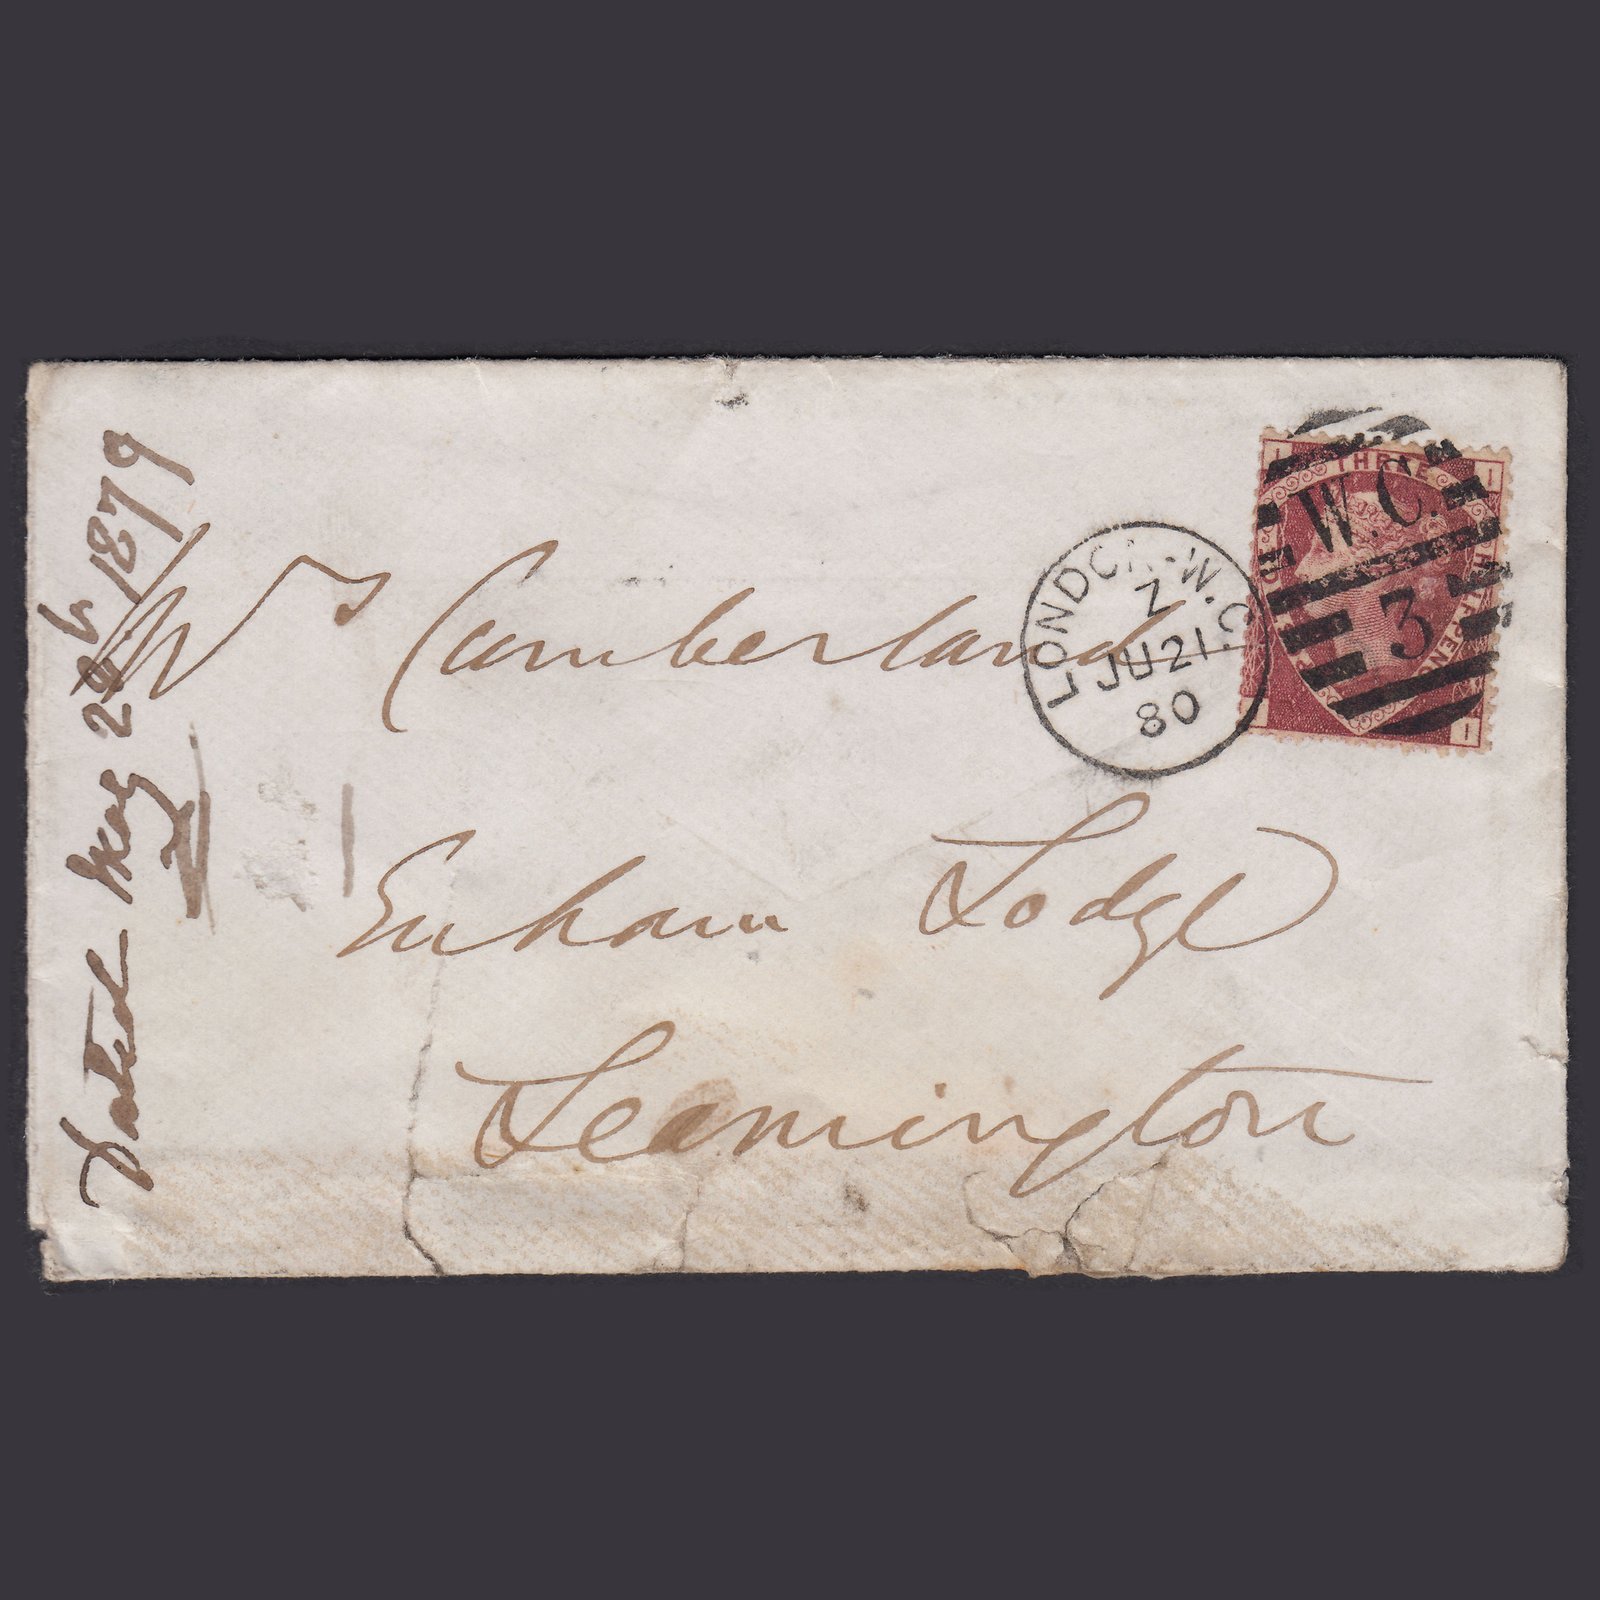 Dated May 24th 1879
Mrs Cumberland
Enham Lodge
Leamington
LONDON·W.C
Z
JU 21
80
W.C.
3
THREE HALFPENCE
I I
I I